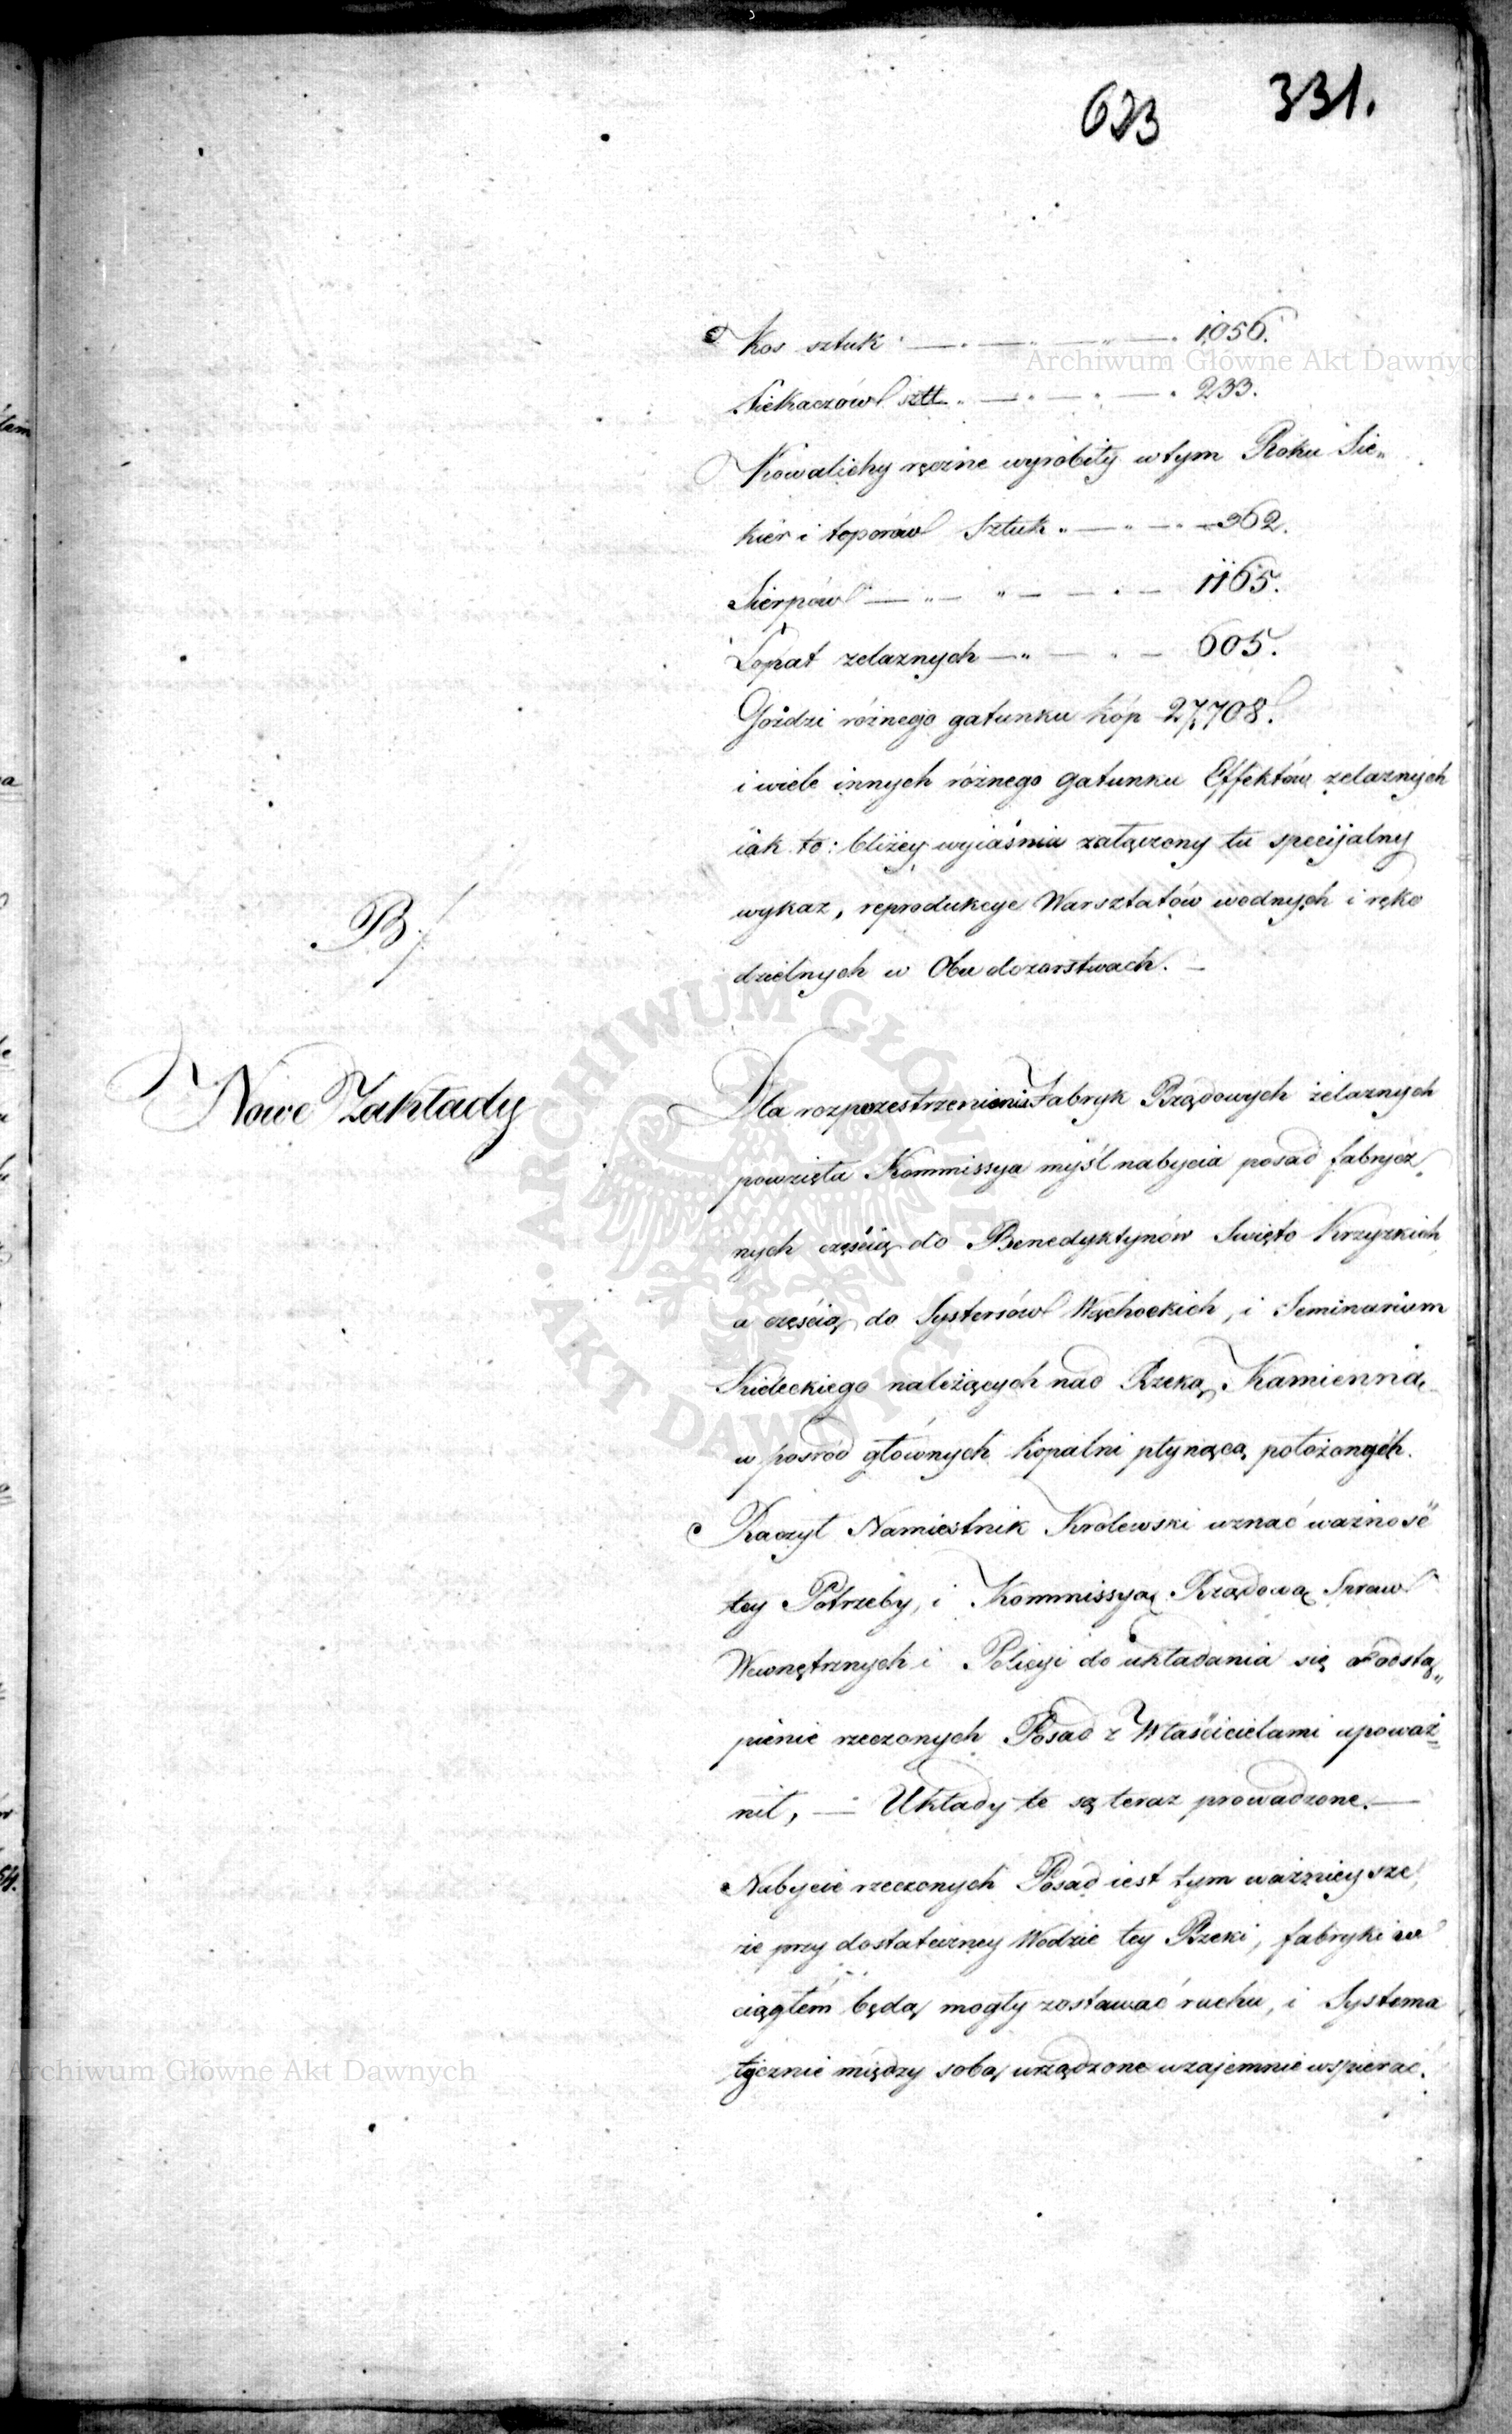 623 331.
Kos sztuk — — — 1056.
Siekaczów szt — — — 233.
Kowalichy ręczne wyrobiły w tym Roku Sie„
kier i toporów Sztuk — — 362.
Sierpów — — — 1165.
Łopat zelaznych — — 605.
Goździ różnego gatunku kóp 27,708.
i wiele innych różnego gatunku Effektów zelaznych
iak to: bliżey wyiaśnia załączony tu specijalny
B/
wykaz, reprodukcye Warsztatów wodnych i ręko
dzielnych w Obu dozorstwach. —
Nowe Zakłady
Dla rozprzestrzenienia Fabryk Rządowych żelaznych
powzięła Kommissya myśl nabycia posad fabrycz„
nych częścią do Benedyktynów Swięto Krzyzkich
a częścią do Systersów Wąchockich, i Seminarium
Kieleckiego należących nad Rzeką Kamienną
w pośród głównych kopalni płynącą położonych.
Raczył Namiestnik Krolewski uznać ważność
tey Potrzeby, i Kommissyą Rządową Spraw
Wewnętrznych i Policyi do układania się o odstą„
pienie rzeczonych Posad z Właścicielami upoważ=
nił, — Układy te są teraz prowadzone. —
Nabycie rzeczonych Posad iest tym ważnieysze,
że przy dostateczney Wodzie tey Rzeki, fabryki w
ciągłém będą mogły zostawać ruchu, i Systema
tycznie między sobą urządzone wzajemnie wspierać.
Archiwum Główne Akt Dawnych
ARCHIWUM GŁÓWNE AKT DAWNYCH
Archiwum Główne Akt Dawnych